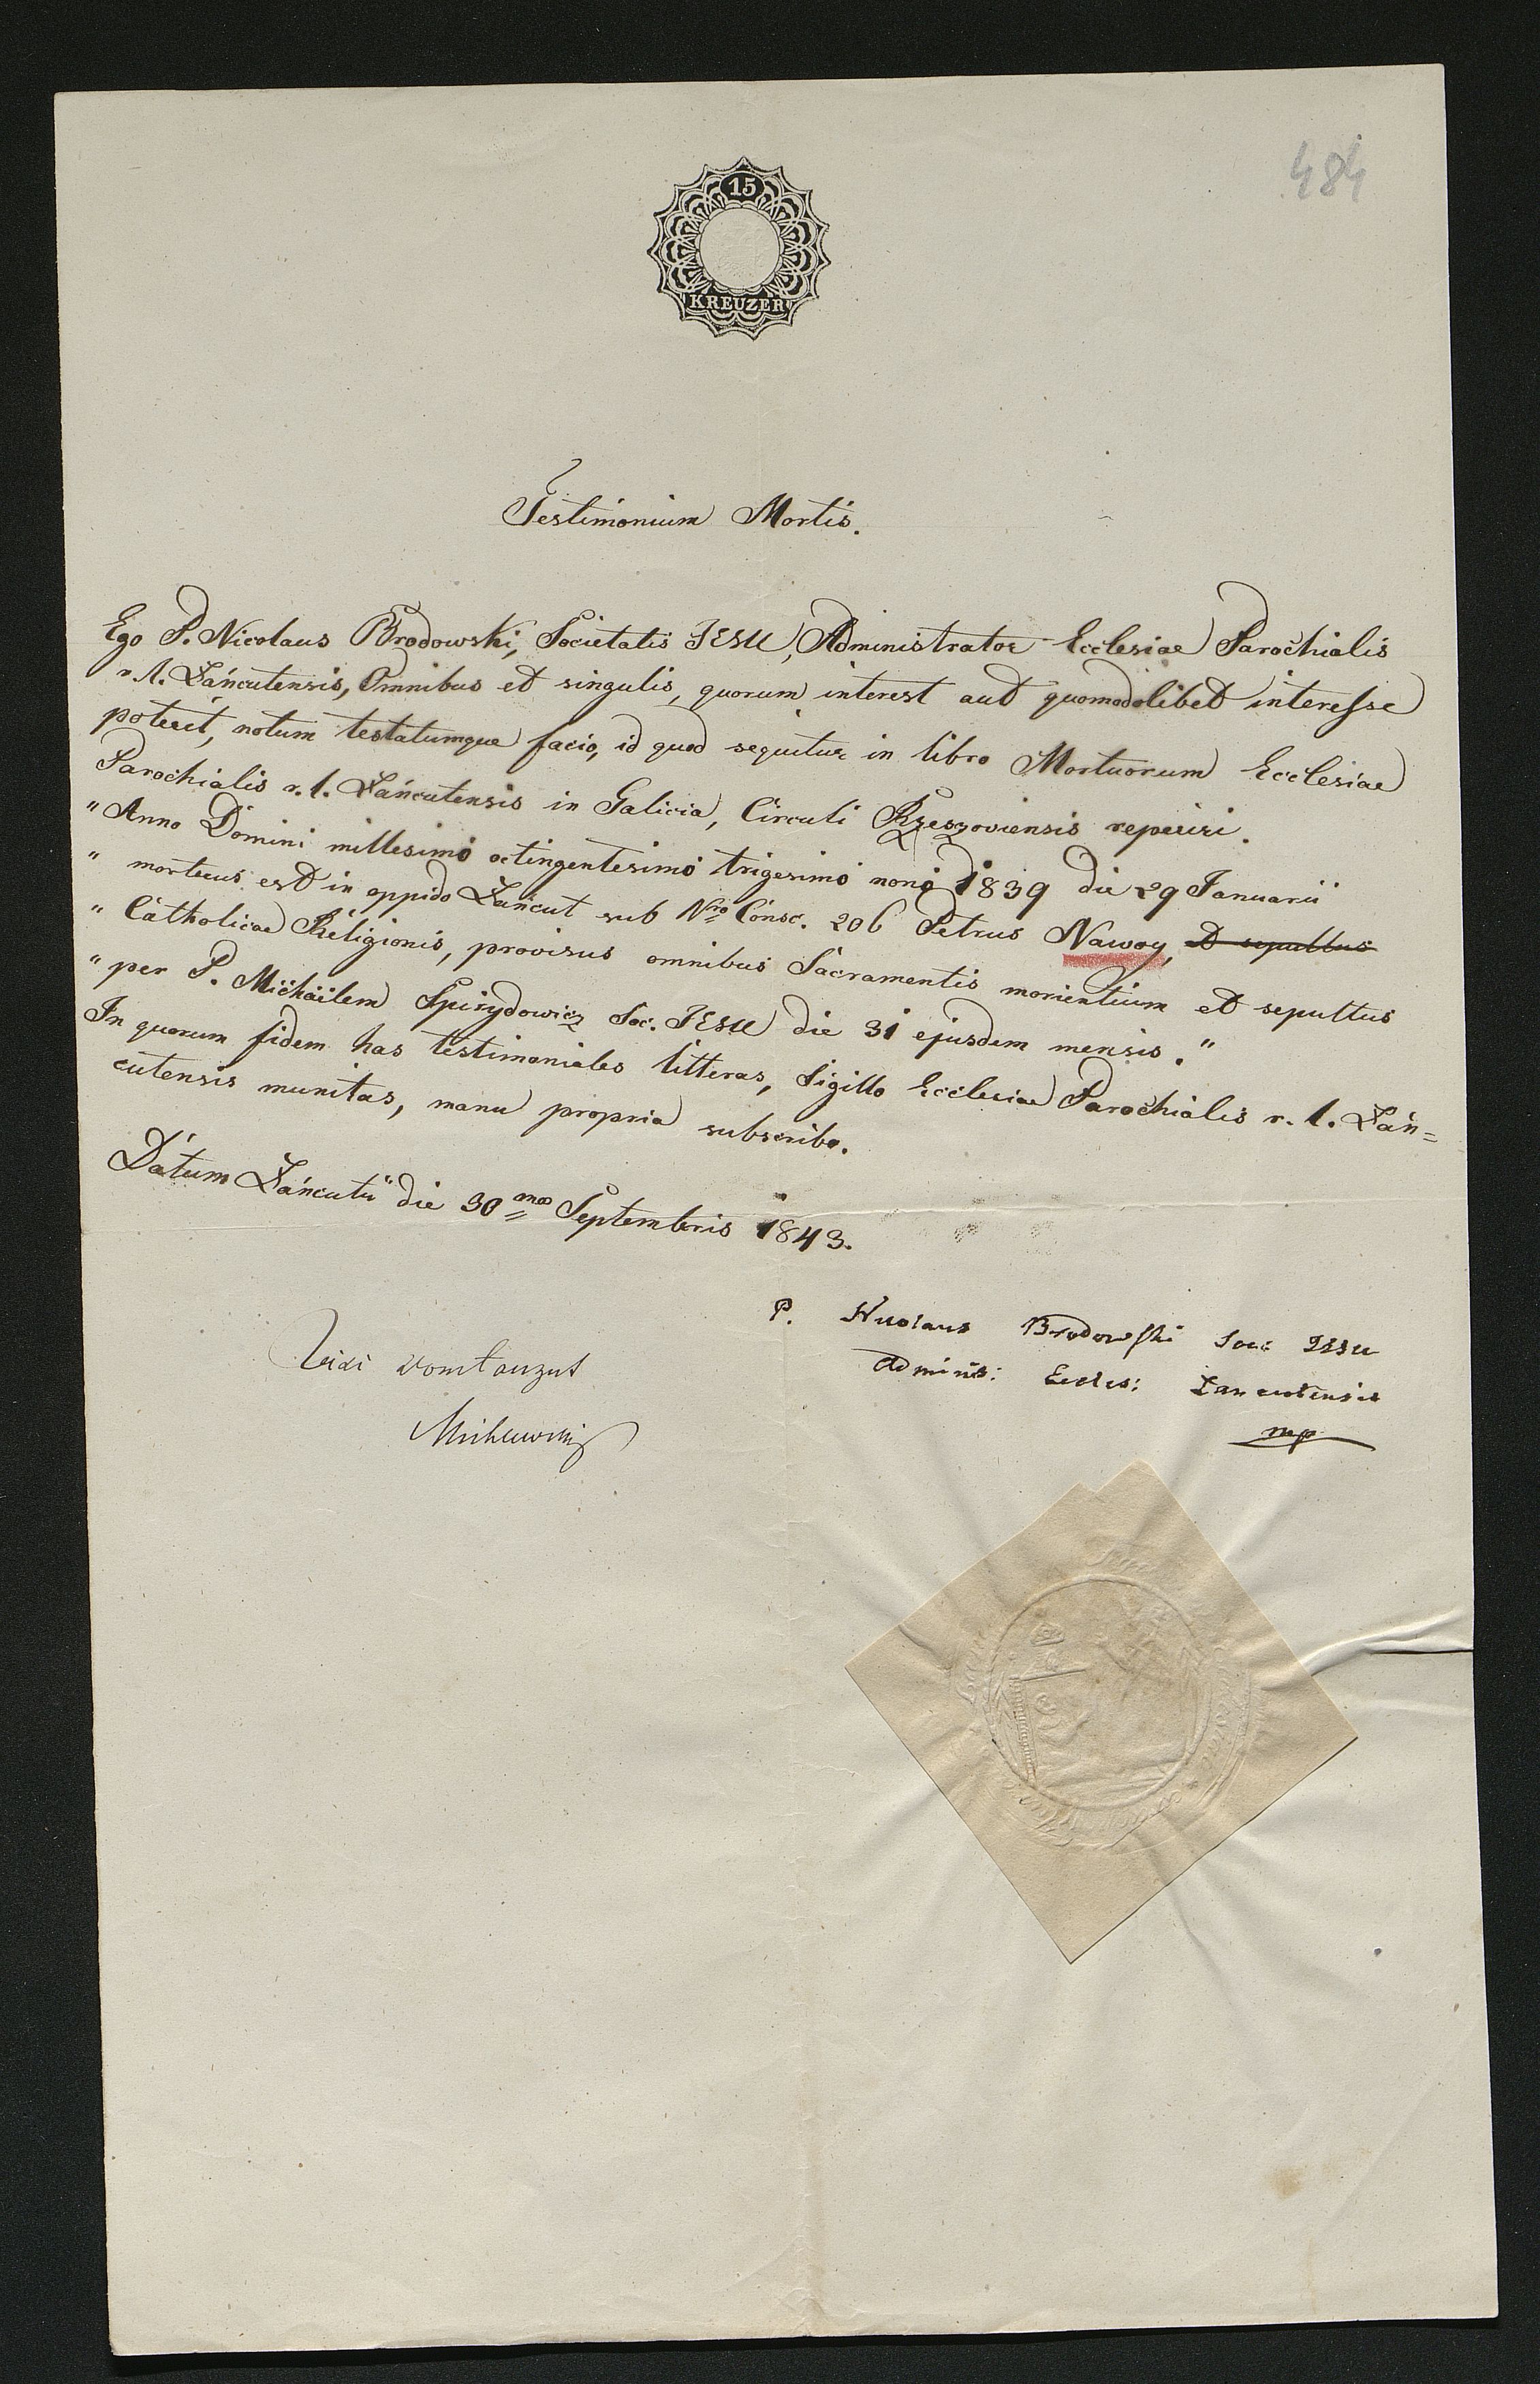 484
15
KREUZER
Testimonium Mortis.
Ego P. Nicolaus Brodowski, Societatis JESU, Administrator Ecclesiae Parochialis
r. l. Łáncutensis, Omnibus et singulis, quorum interest aut quomodolibet interesse
poterit, notum testatumque facio, id quod sequitur in libro Mortuorum Ecclesiae
Parochialis r. l. Łáncutensis in Galicia, Circuli Rzeszoviensis reperiri.
"Anno Domini millesimo octingentesimo trigesimo nono 1839 die 29 Januarii
" mortuus est in oppido Łańcut sub Nro Consc. 206 Petrus Nawoy, et sepultus
" Catholicae Religionis, provisus omnibus Sacramentis morientium et sepultus
" per P. Michaëlem Spirydowicz Soc. JESU die 31 ejusdem mensis."
In quorum fidem has testimoniales litteras, Sigillo Ecclesiae Parochialis r. l. Łáń=
cutensis munitas, manu propria subscribo.
Datum Łáncuti die 30 ma Septembris 1843.
P. Nicolaus Brodowski Soc: JESU
Adminis: Eccles: Łancutensis
mp
Vidi